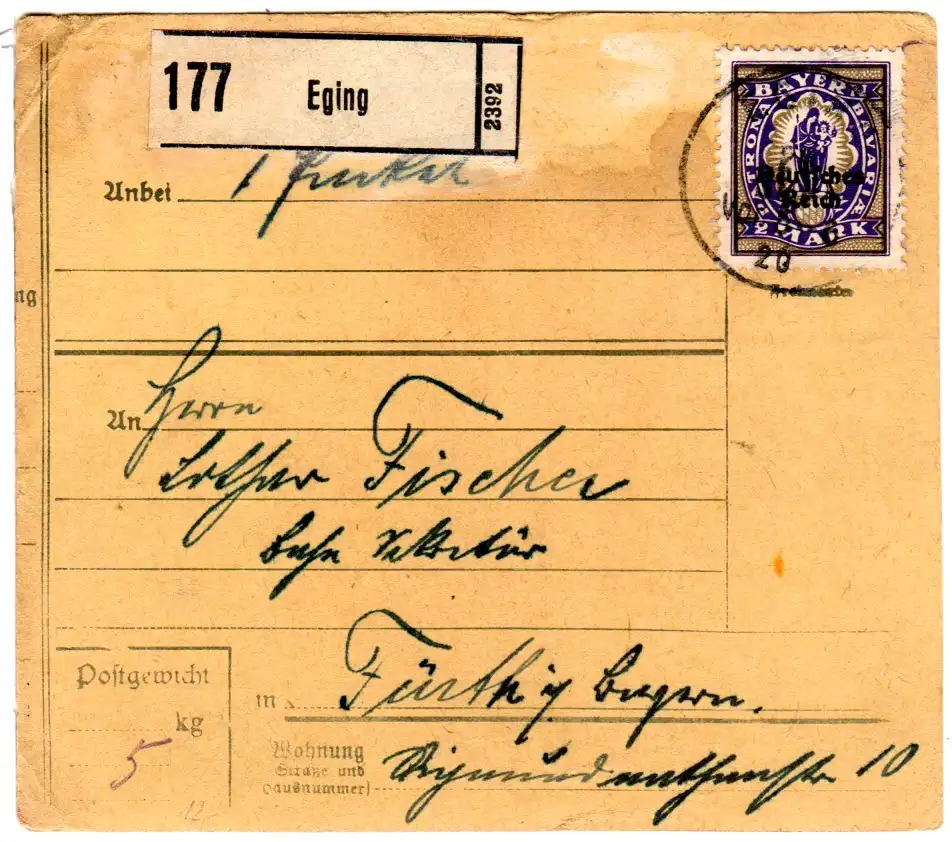 177 Eging 2392
BAYERN
PATRONA BAVARIÆ
Deutsches
Reich
2 MARK
20
Anbei 1
ng
An Herrn
Lothar Fischer
Bahn Sekretär
Postgewicht
kg
5
in Fürth i/ Bayern.
Wohnung
Straße und
Hausnummer)
10
12.-